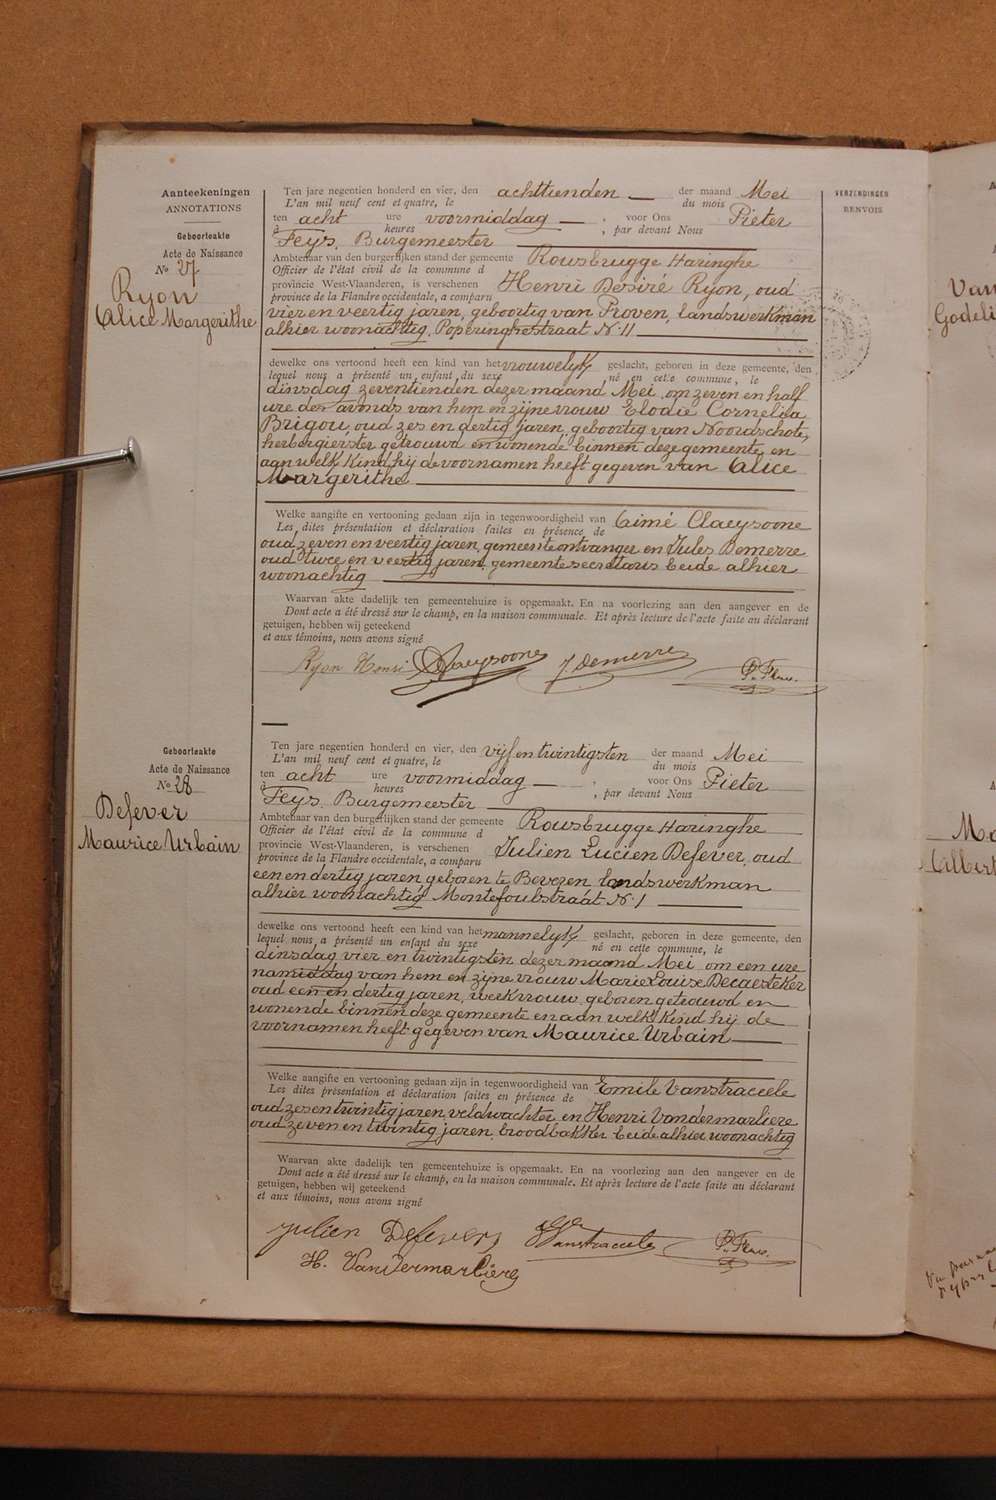 Aanteekeningen
ANNOTATIONS
Geboorteakte
Acte de Naissance
No 27
Ryon
Alice Margerithe
Ten jare negentien honderd en vier, den achttienden der maand Mei
L'an mil neuf cent et quatre, le du mois
ten acht ure voormiddag ; voor Ons Pieter
à heures , par devant Nous
Feys, Burgemeester
Ambtenaar van den burgerlijken stand der gemeente Rousbrugge Haringhe
Officier de l'état civil de la commune d
provincie West-Vlaanderen, is verschenen Henri Desiré Ryon, oud
province de la Flandre occidentale, a comparu
vier en veertig jaren, geboortig van Proven, landswerkman
alhier woonachtig, Poperinghestraat N. 11
dewelke ons vertoond heeft een kind van het vrouwelijk geslacht, geboren in deze gemeente, den
lequel nous a présenté un enfant du sexe né en cette commune, le
dinsdag zeventienden dezer maand Mei om zeven en half
ure des avonds van hem en zijne vrouw Elodie Cornelia
Brigou, oud zes en dertig jaren, geboortig van Noordschote,
herbergierster getrouwd en wonende binnen deze gemeente, en
aan welk kind hij de voornamen heeft gegeven van Alice
Margerithe
Welke aangifte en vertooning gedaan zijn in tegenwoordigheid van Aimé Claeysoone
Les dites présentation et déclaration faites en présence de
oud zeven en veertig jaren, gemeenteontvanger en Jules Demerre
oud twee en veertig jaren, gemeentesecretaris beide alhier
woonachtig
Waarvan akte dadelijk ten gemeentehuize is opgemaakt. En na voorlezing aan den aangever en de
Dont acte a été dressé sur le champ, en la maison communale. Et après lecture de l'acte faite au déclarant
getuigen, hebben wij geteekend
et aux témoins, nous avons signé
Ryon Henri Claeysoone J Demerre P. Feys.
Geboorteakte
Acte de Naissance
No 28
Defever
Maurice Urbain
Ten jare negentien honderd en vier, den vijf en twintigsten der maand Mei
L'an mil neuf cent et quatre, le du mois
ten acht ure voormiddag ; voor Ons Pieter
à heures , par devant Nous
Feys, Burgemeester
Ambtenaar van den burgerlijken stand der gemeente Rousbrugge Haringhe
Officier de l'état civil de la commune d
provincie West-Vlaanderen, is verschenen Julien Lucien Defever, oud
province de la Flandre occidentale, a comparu
een en dertig jaren, geboren te Bevezen, landswerkman
alhier woonachtig Montefoubstraat N. 1
dewelke ons vertoond heeft een kind van het mannelyk geslacht, geboren in deze gemeente, den
lequel nous a présenté un enfant du sexe né en cette commune, le
dinsdag vier en twintigsten dezer maand Mei om een ure
namiddag van hem en zijne vrouw Marie Louise Decaesteker
oud een en dertig jaren, werkvrouw, geboren getrouwd en
wonende binnen deze gemeente en aan welk kind hij de
voornamen heeft gegeven van Maurice Urbain
Welke aangifte en vertooning gedaan zijn in tegenwoordigheid van Emile Vanstraceele
Les dites présentation et déclaration faites en présence de
oud zes en twintig jaren, veldwachter en Henri Vandermarliere
oud zeven en twintig jaren, broodbakker beide alhier woonachtig
Waarvan akte dadelijk ten gemeentehuize is opgemaakt. En na voorlezing aan den aangever en de
Dont acte a été dressé sur le champ, en la maison communale. Et après lecture de l'acte faite au déclarant
getuigen, hebben wij geteekend
et aux témoins, nous avons signé
Julien Defevers Vanstraceele P. Feys.
H. Vandermarliere
VERZENDINGEN
RENVOIS
Van
Godeli
Ma
Albert